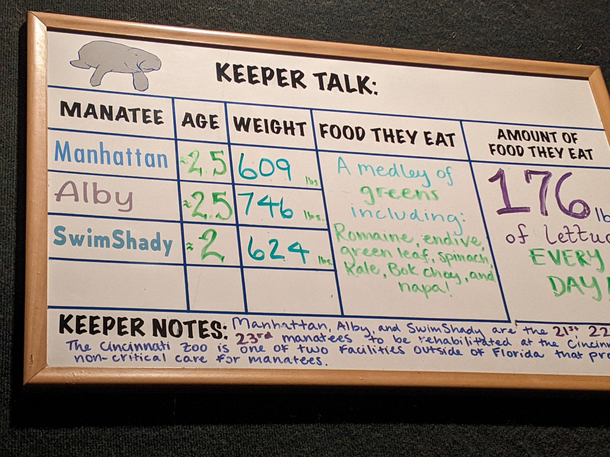 KEEPER TALK:
MANATEE AGE WEIGHT FOOD THEY EAT AMOUNT OF
FOOD THEY EAT
Manhattan ≈2.5 609 lbs.
Alby ≈2.5 746 lbs.
SwimShady ≈2 624 lbs.
A medley of
greens
including:
Romaine, endive,
green leaf, spinach
Kale, Bok choy, and
napa!
176
of lettuc
EVERY
DAY!
KEEPER NOTES: Manhattan, Alby, and SwimShady are the 21st 22
23rd manatees to be rehabilitated at the Cincinn
The Cincinnati Zoo is one of two facilities outside of Florida that pro
non-critical care for manatees.